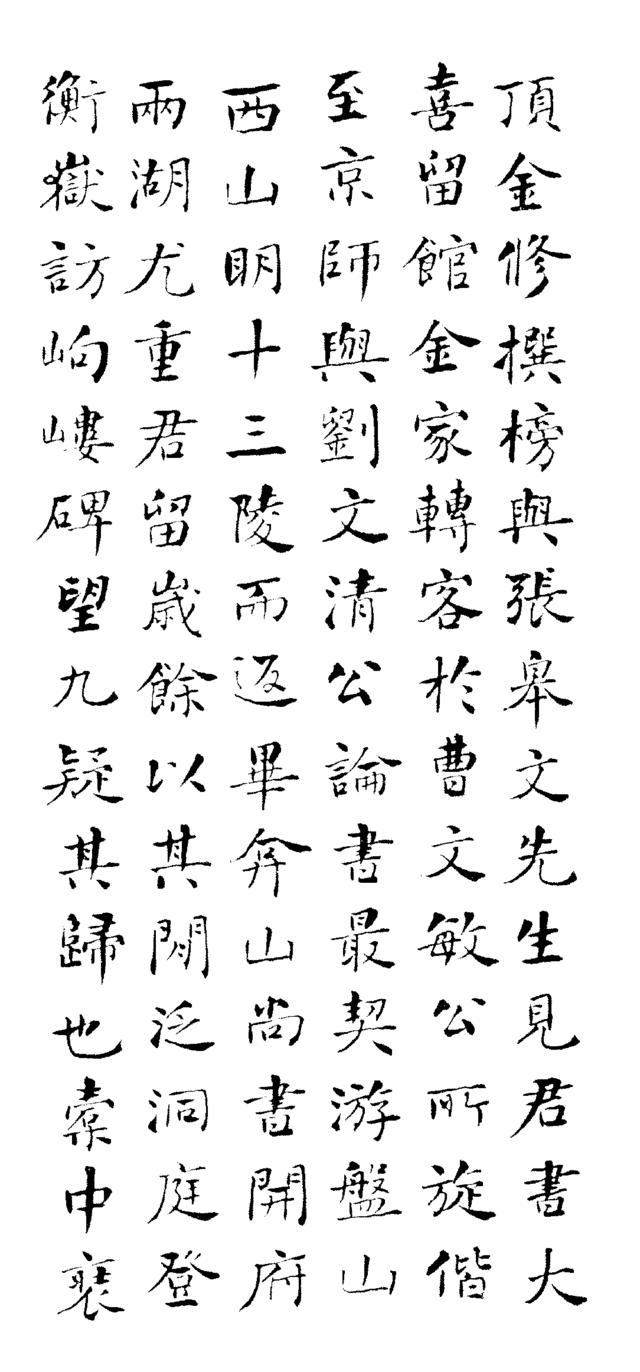 頂金修撰榜與張皋文先生見君書大
喜留館金家轉客於曹文敏公所旋偕
至京師與劉文清公論書最契游盤山
西山明十三陵而返畢弇山尚書開府
兩湖尤重君留歲餘以其閒泛洞庭登
衡嶽訪岣嶁碑望九疑其歸也橐中裝